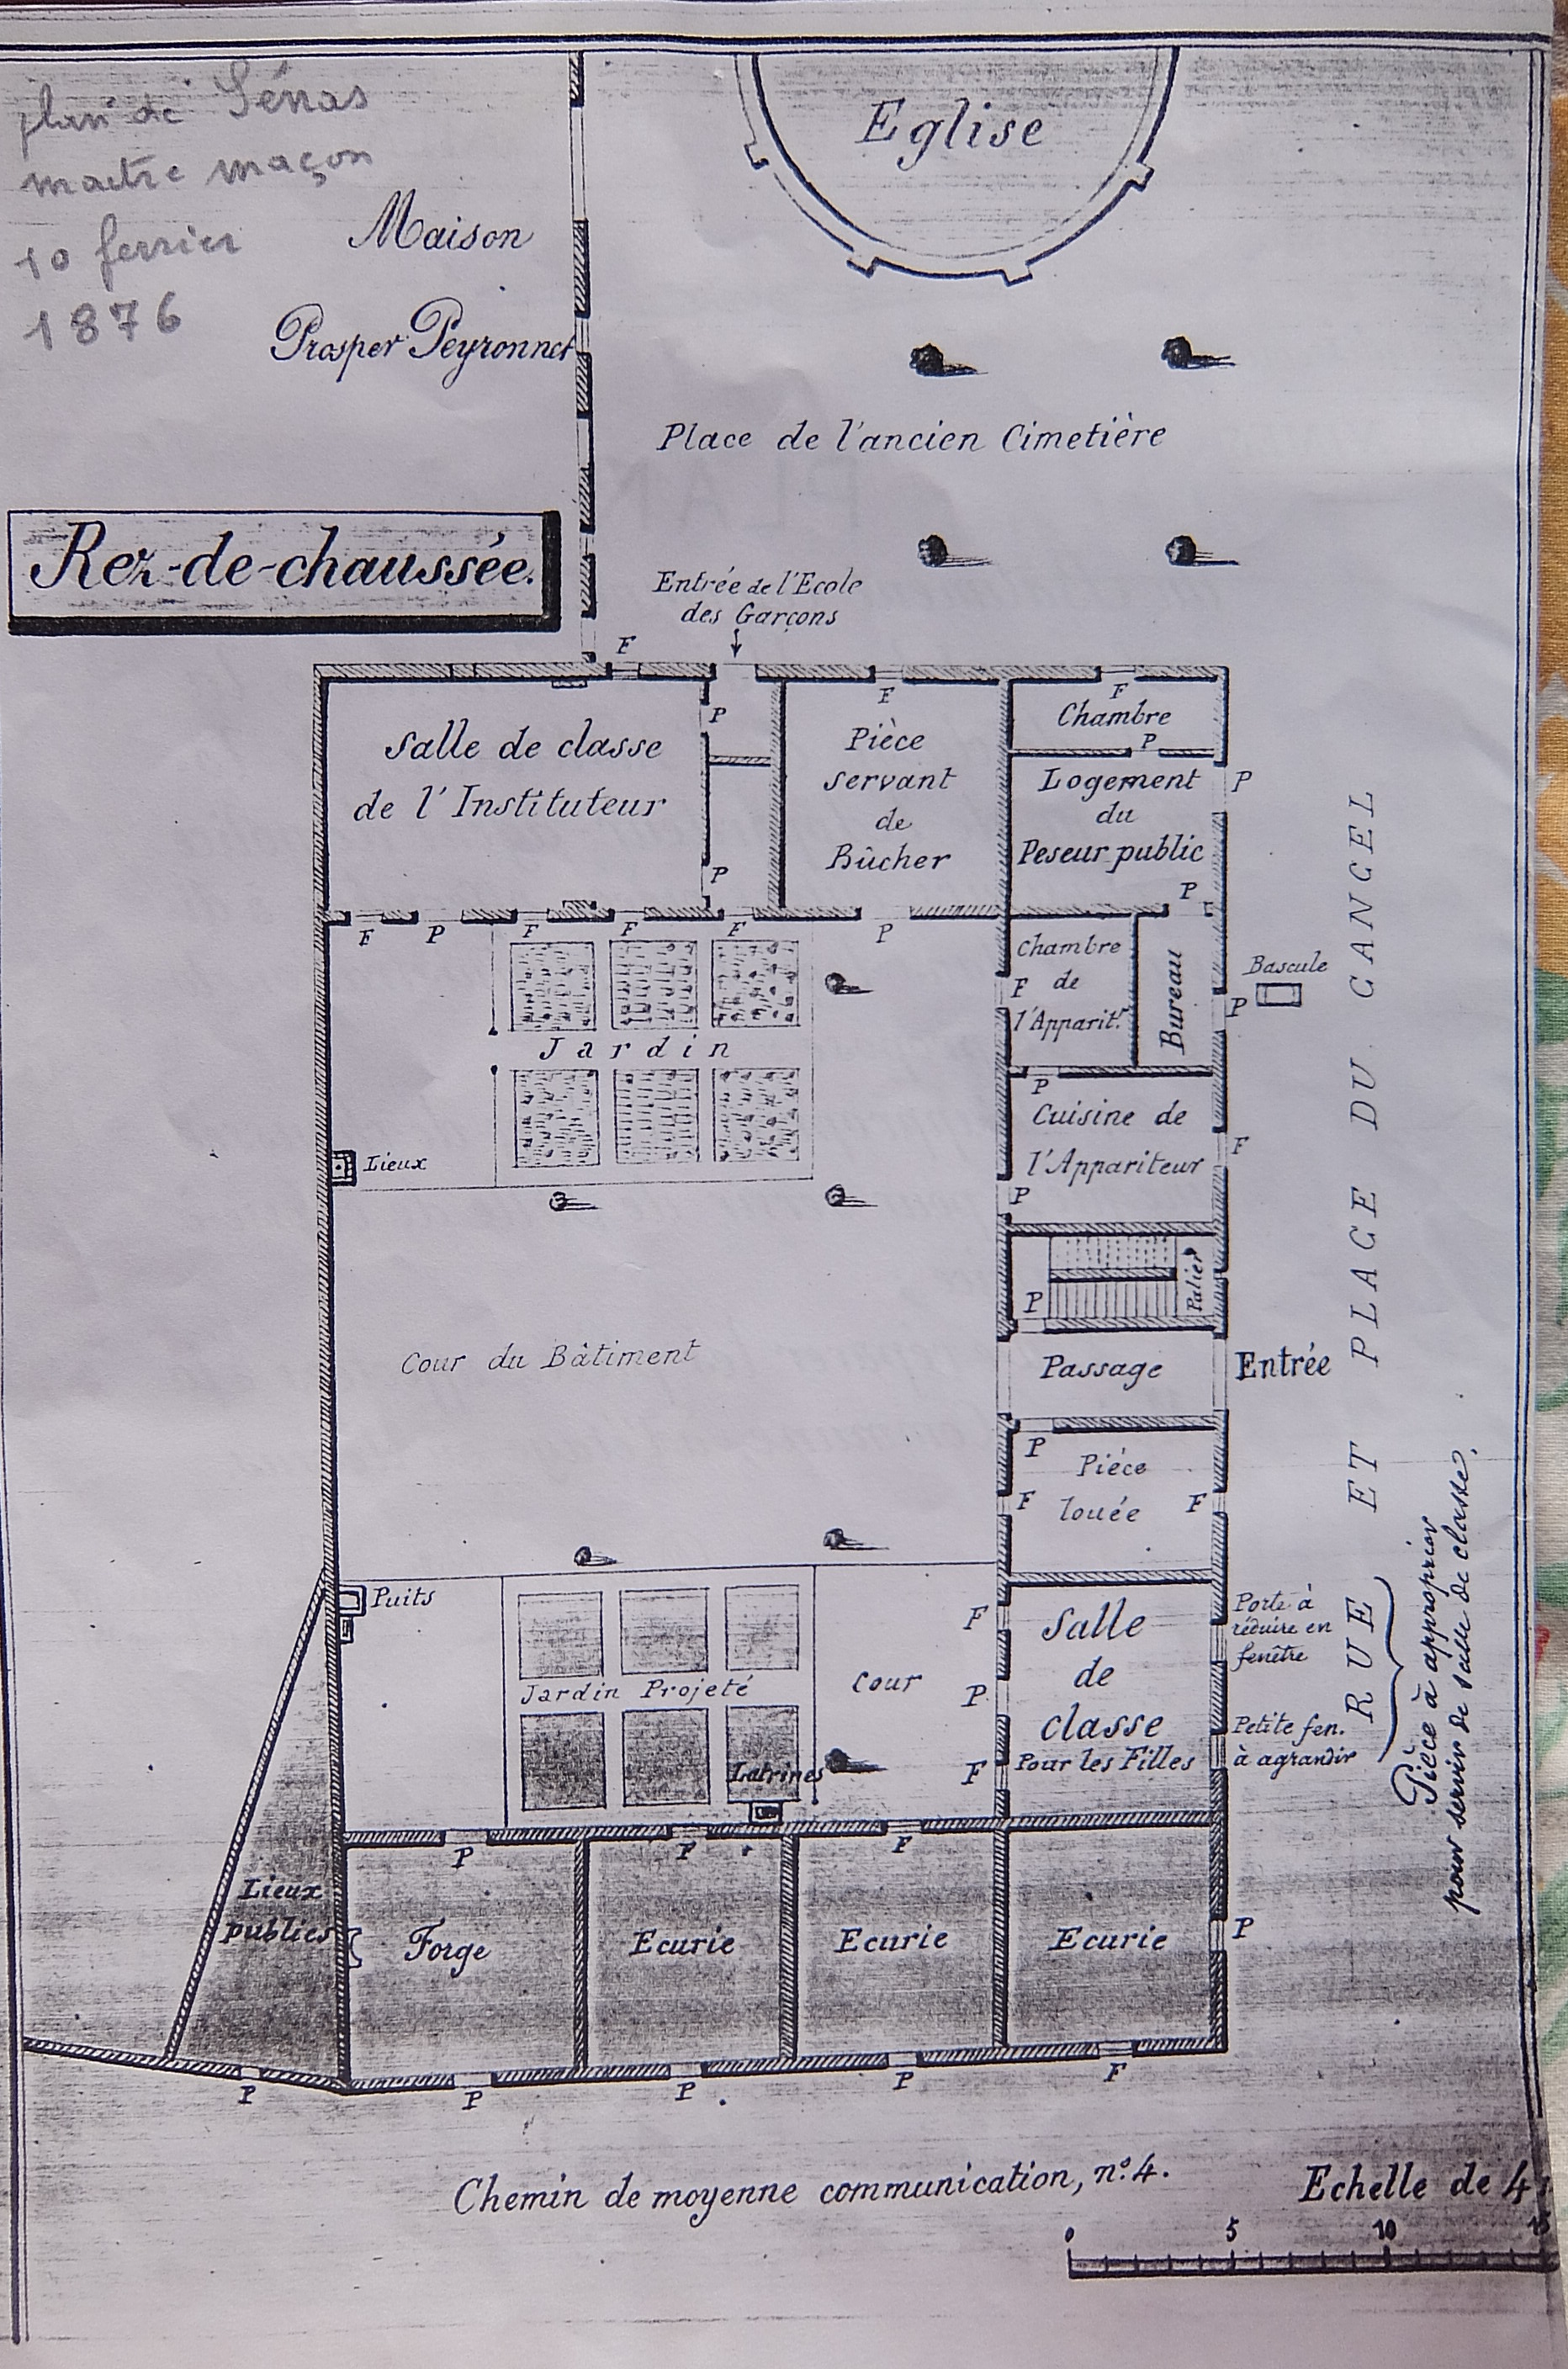 plan de Sénas
maitre maçon
10 ferrier
1876
Eglise
Maison
Prosper Peyronnet
Place de l'ancien Cimetière
Rez-de-chaussée.
Entrée de l'Ecole
des Garçons
F
F
F
P
Salle de classe
de l'Instituteur
P
Pièce
servant
de
Bûcher
Chambre
P
Logement
du
Peseur public
P
P
F
P
F
F
F
P
Jardin
Lieux
Chambre
de
l'Apparit.r
F
Bureau
P
Bascule
P
Cuisine de
l'Appariteur
F
P
P
Palier
Cour du Bâtiment
Passage
Entrée
P
Pièce
louée
F
F
RUE ET PLACE DU CANCEL
Puits
Jardin Projeté
Latrines
Cour
F
P
F
Salle
de
classe
Pour les Filles
Porte à
réduire en
fenêtre
Petite fen.
à agrandir
Pièce à approprier
pour servir de salle de classe.
Lieux
publics
P
F
F
Forge
Ecurie
Ecurie
Ecurie
P
P
P
P
P
F
Chemin de moyenne communication, n.o 4.
Echelle de 4
0 5 10 15